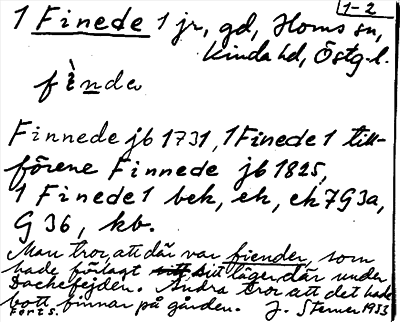 1-2
1 Finede 1 jr, gd, Horns sn,
Kinda hd, Östg.l.
fìnde
Finnede jb 1731, 1 Finede 1 till-
förene Finnede jb 1825,
1 Finede 1 bek, ek, ek 7G3a,
G 36, kb.
Man tror, att där var fiender, som
hade förlagt sitt läger där under
Dackefejden. Andra tror att det hade
bott finnar på gården. J. Sterner 1933
Forts.